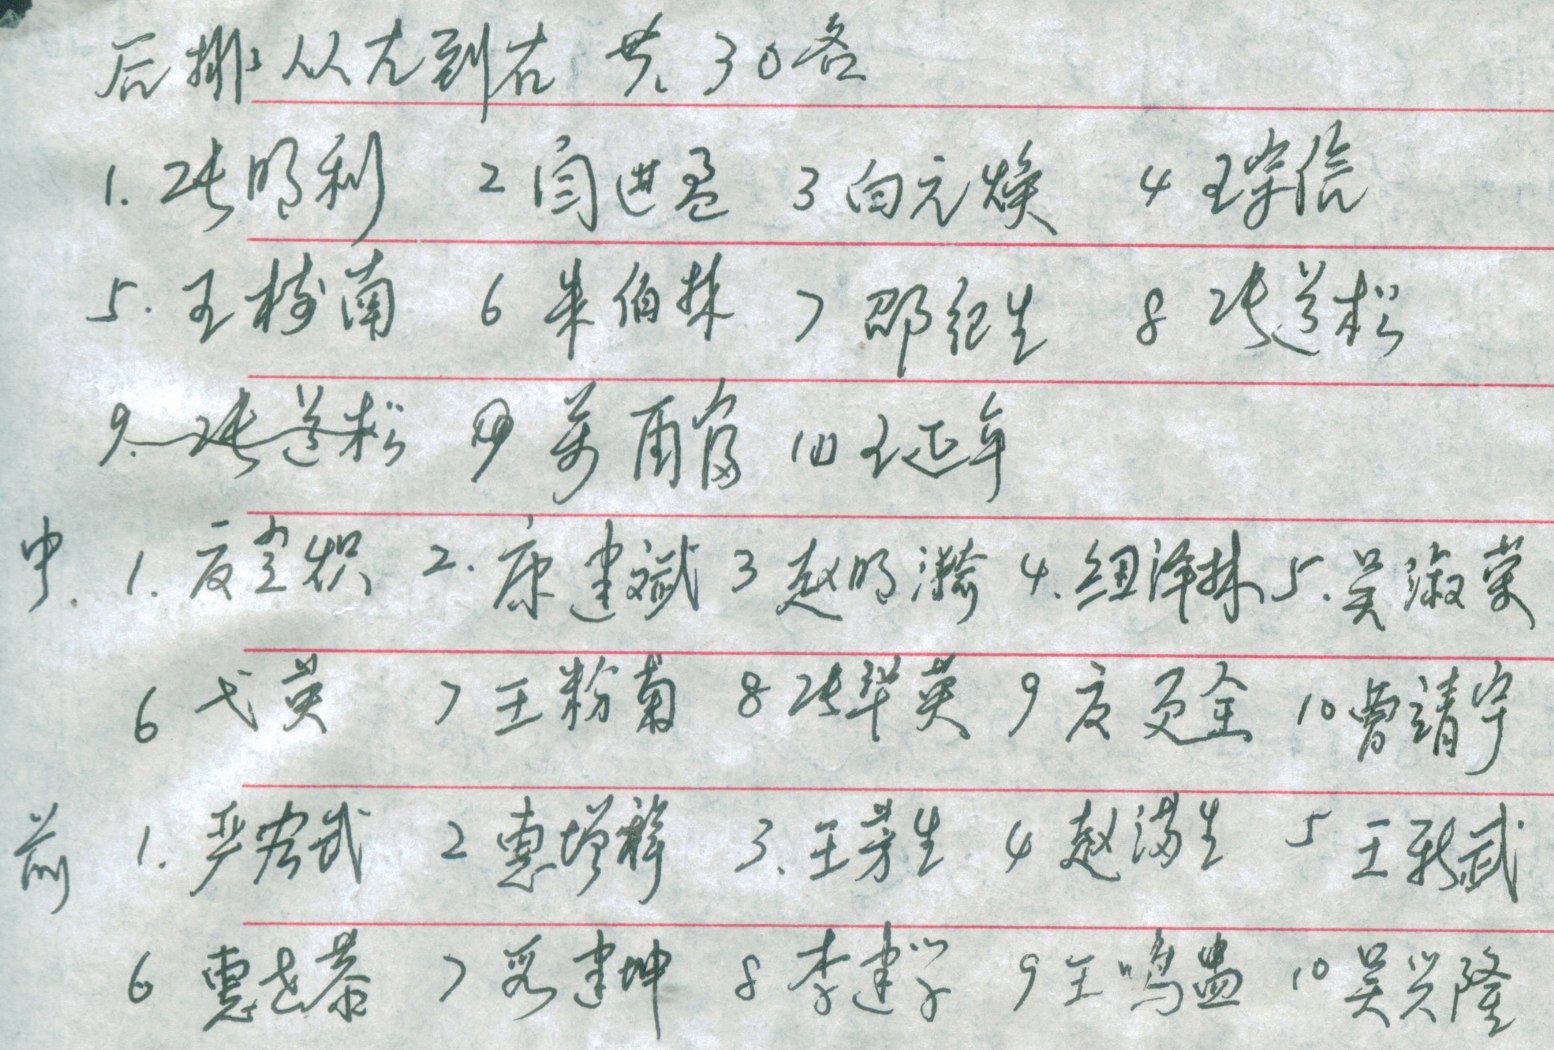 后排 从左到右 共30名
1. 张明利 2 闫进盈 3 白元焕 4 王宗信
5. 王树南 6 朱伯林 7 邵纪生 8 张道松
9. 张道松 9 万雨富 10 王延年
中. 1. 2. 康建斌 3 赵明 4. 纽泽林 5. 吴淑荣
6 弋英 7 王粉菊 8 张翠英 9 10 曹靖宇
前 1. 严宏武 2 惠增祥 3. 王芳生 4 赵满生 5 王新武
6 惠志恭 7 建坤 8 李建学 9 王鸣 10 吴兴隆